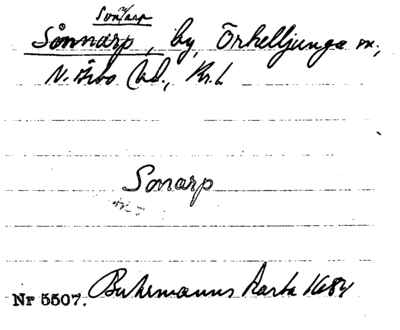 Sonarp
Sånnarp, by, Örkelljunga sn,
N. Åsbo hd., Kr. l.
Sonarp
Nr 5507. Buhrmanns karta 1684